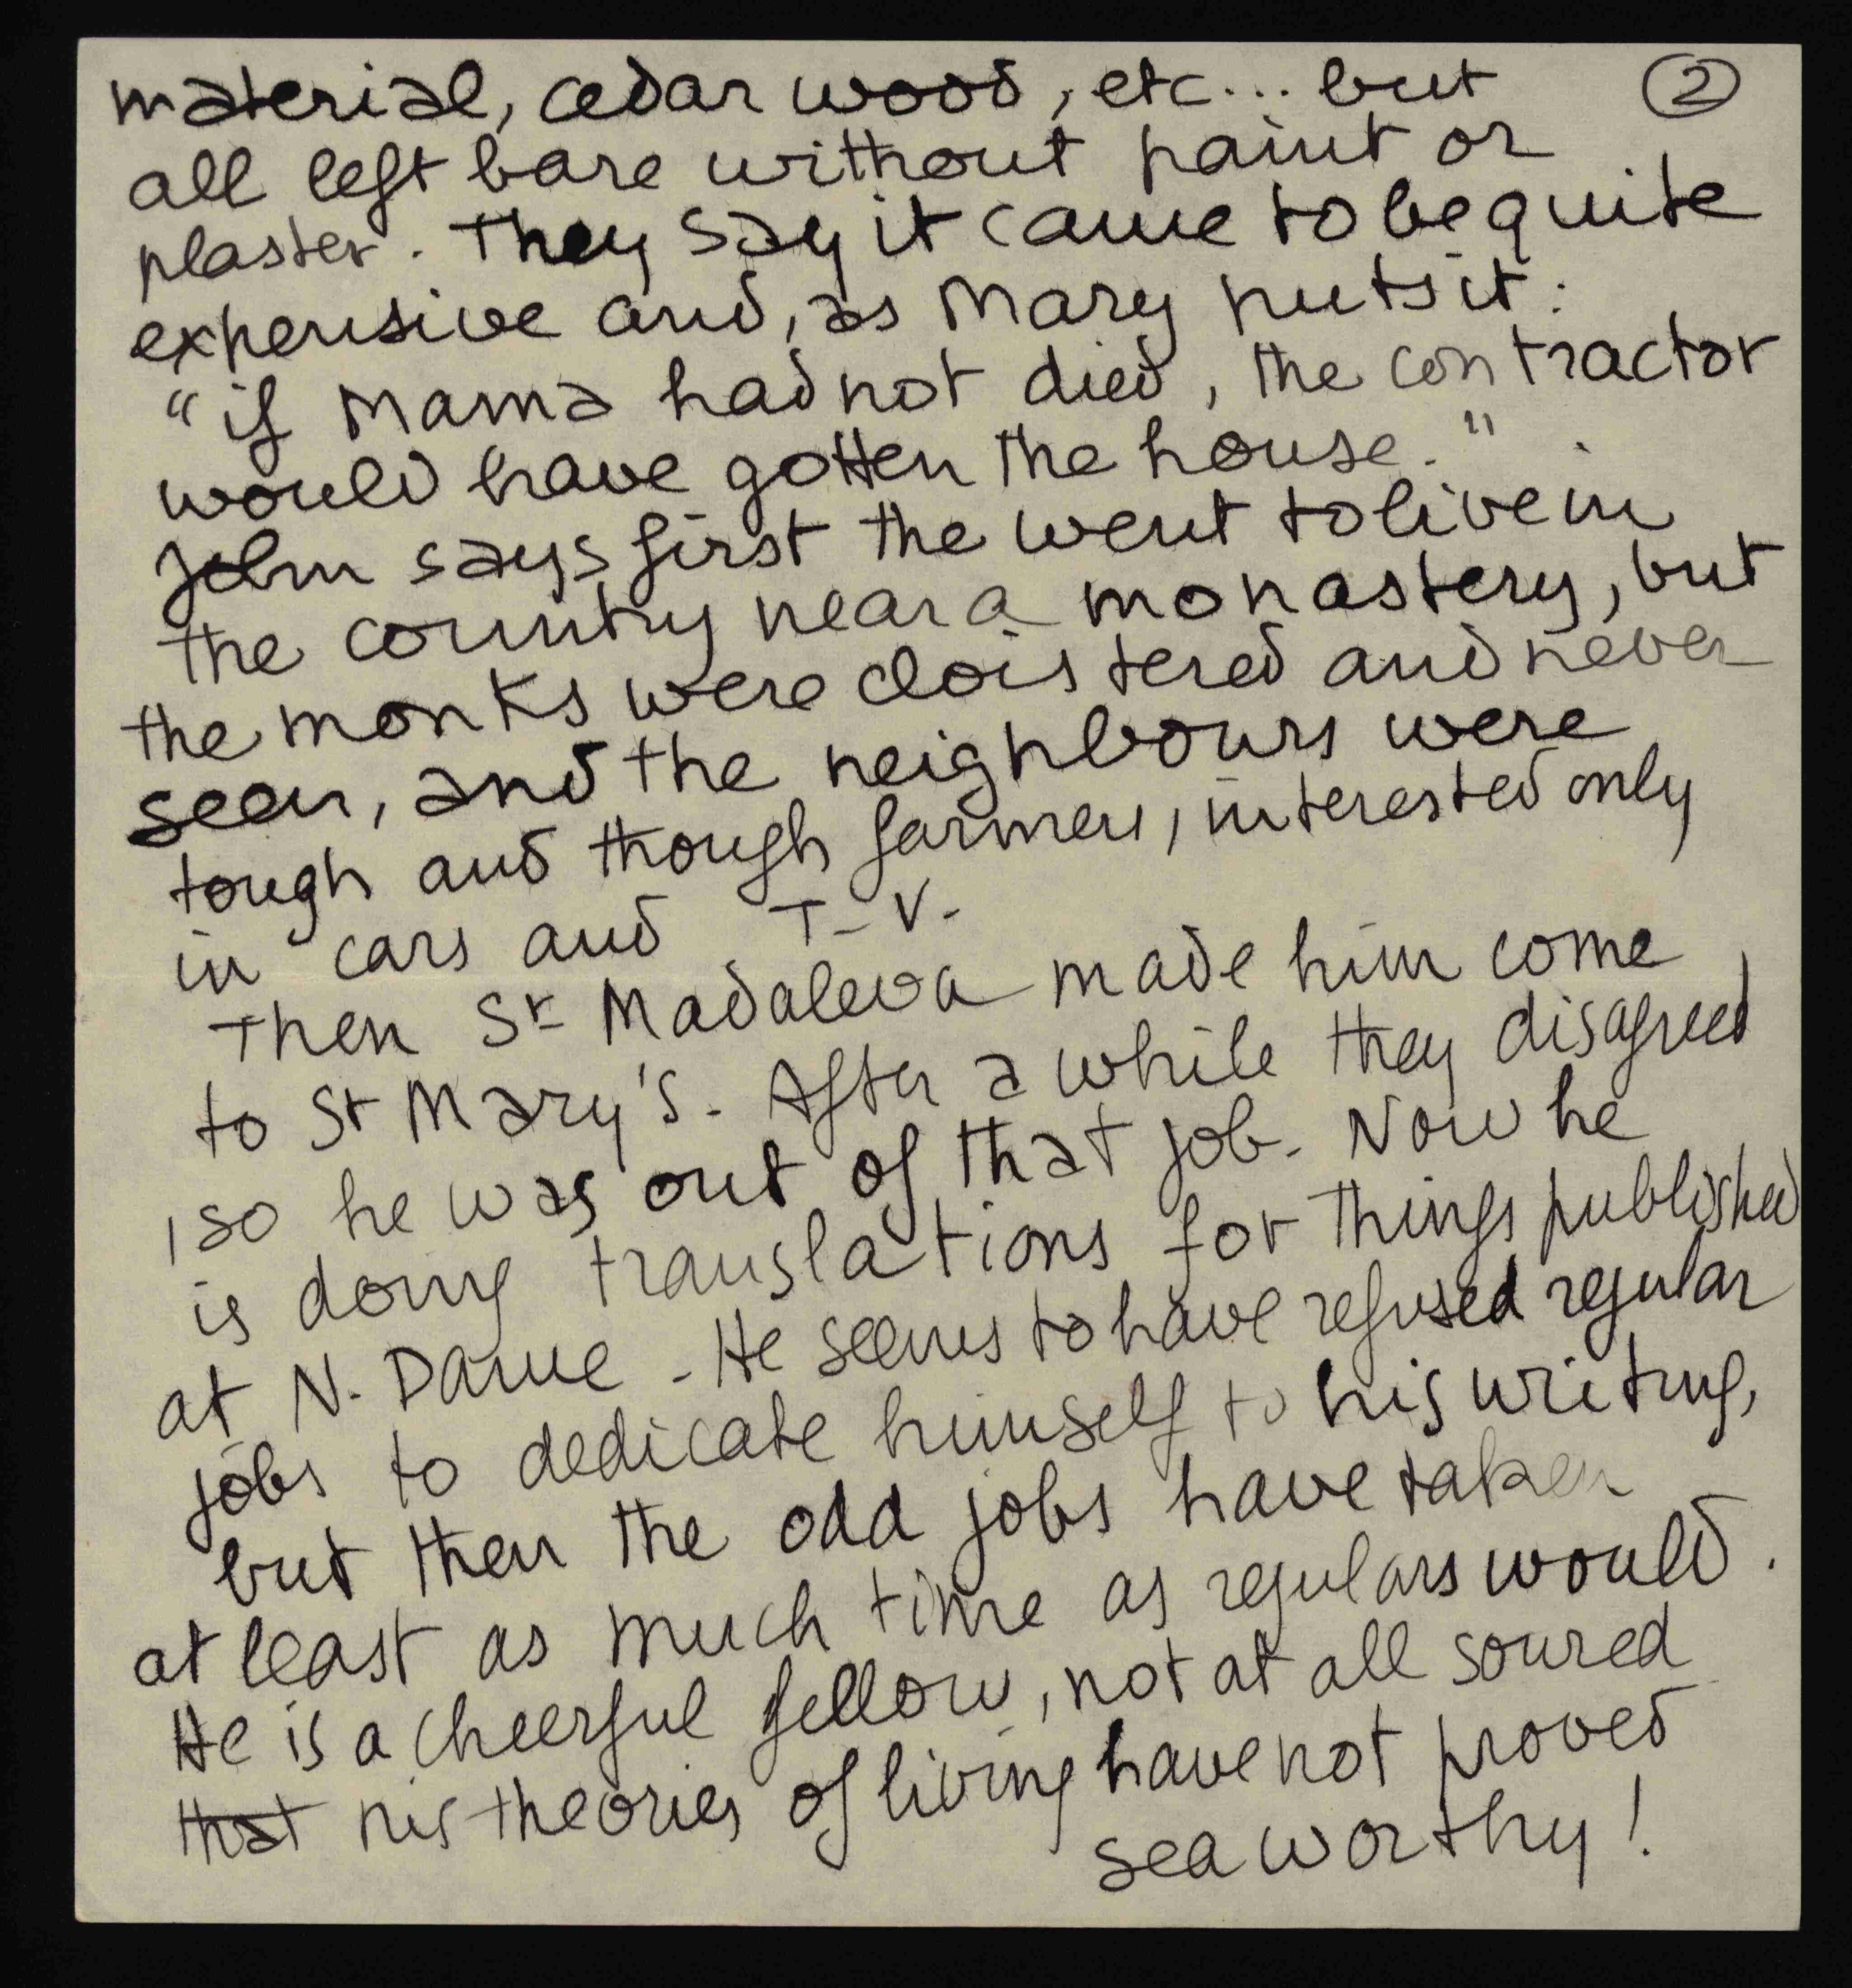 material, cedar wood, etc... but ②
all left bare without paint or
plaster. They say it came to be quite
expensive and, as Mary puts it:
"if Mama had not died, the contractor
would have gotten the house."
John says first the went to live in
the country near a monastery, but
the monks were cloistered and never
seen, and the neighbours were
tough and though farmers, interested only
in cars and T-V-
Then Sr Madaleva made him come
to St Mary's - After a while they disagreed
, so he was out of that job - Now he
is doing translations for things published
at N. Dame - He seems to have refused regular
jobs to dedicate himself to his writing,
but then the odd jobs have taken
at least as much time as regulars would.
He is a cheerful fellow, not at all soured
that his theories of living have not proved
seaworthy!